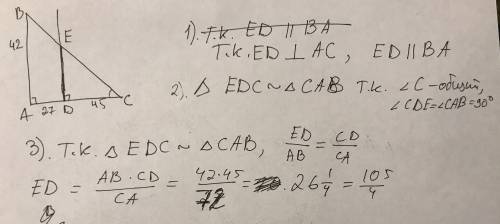 B
E
42
A
27
D
45
C
1). Т.к. ED || BA
Т.к. ED ⊥ AC, ED || BA
2). △ EDC ~ △ CAB т.к. ∠C – общий,
∠CDE = ∠CAB = 90°
3). Т.к. △ EDC ~ △ CAB, ED/AB = CD/CA
ED = AB · CD/CA = 42·45/72 = 26 1/4 = 105/4